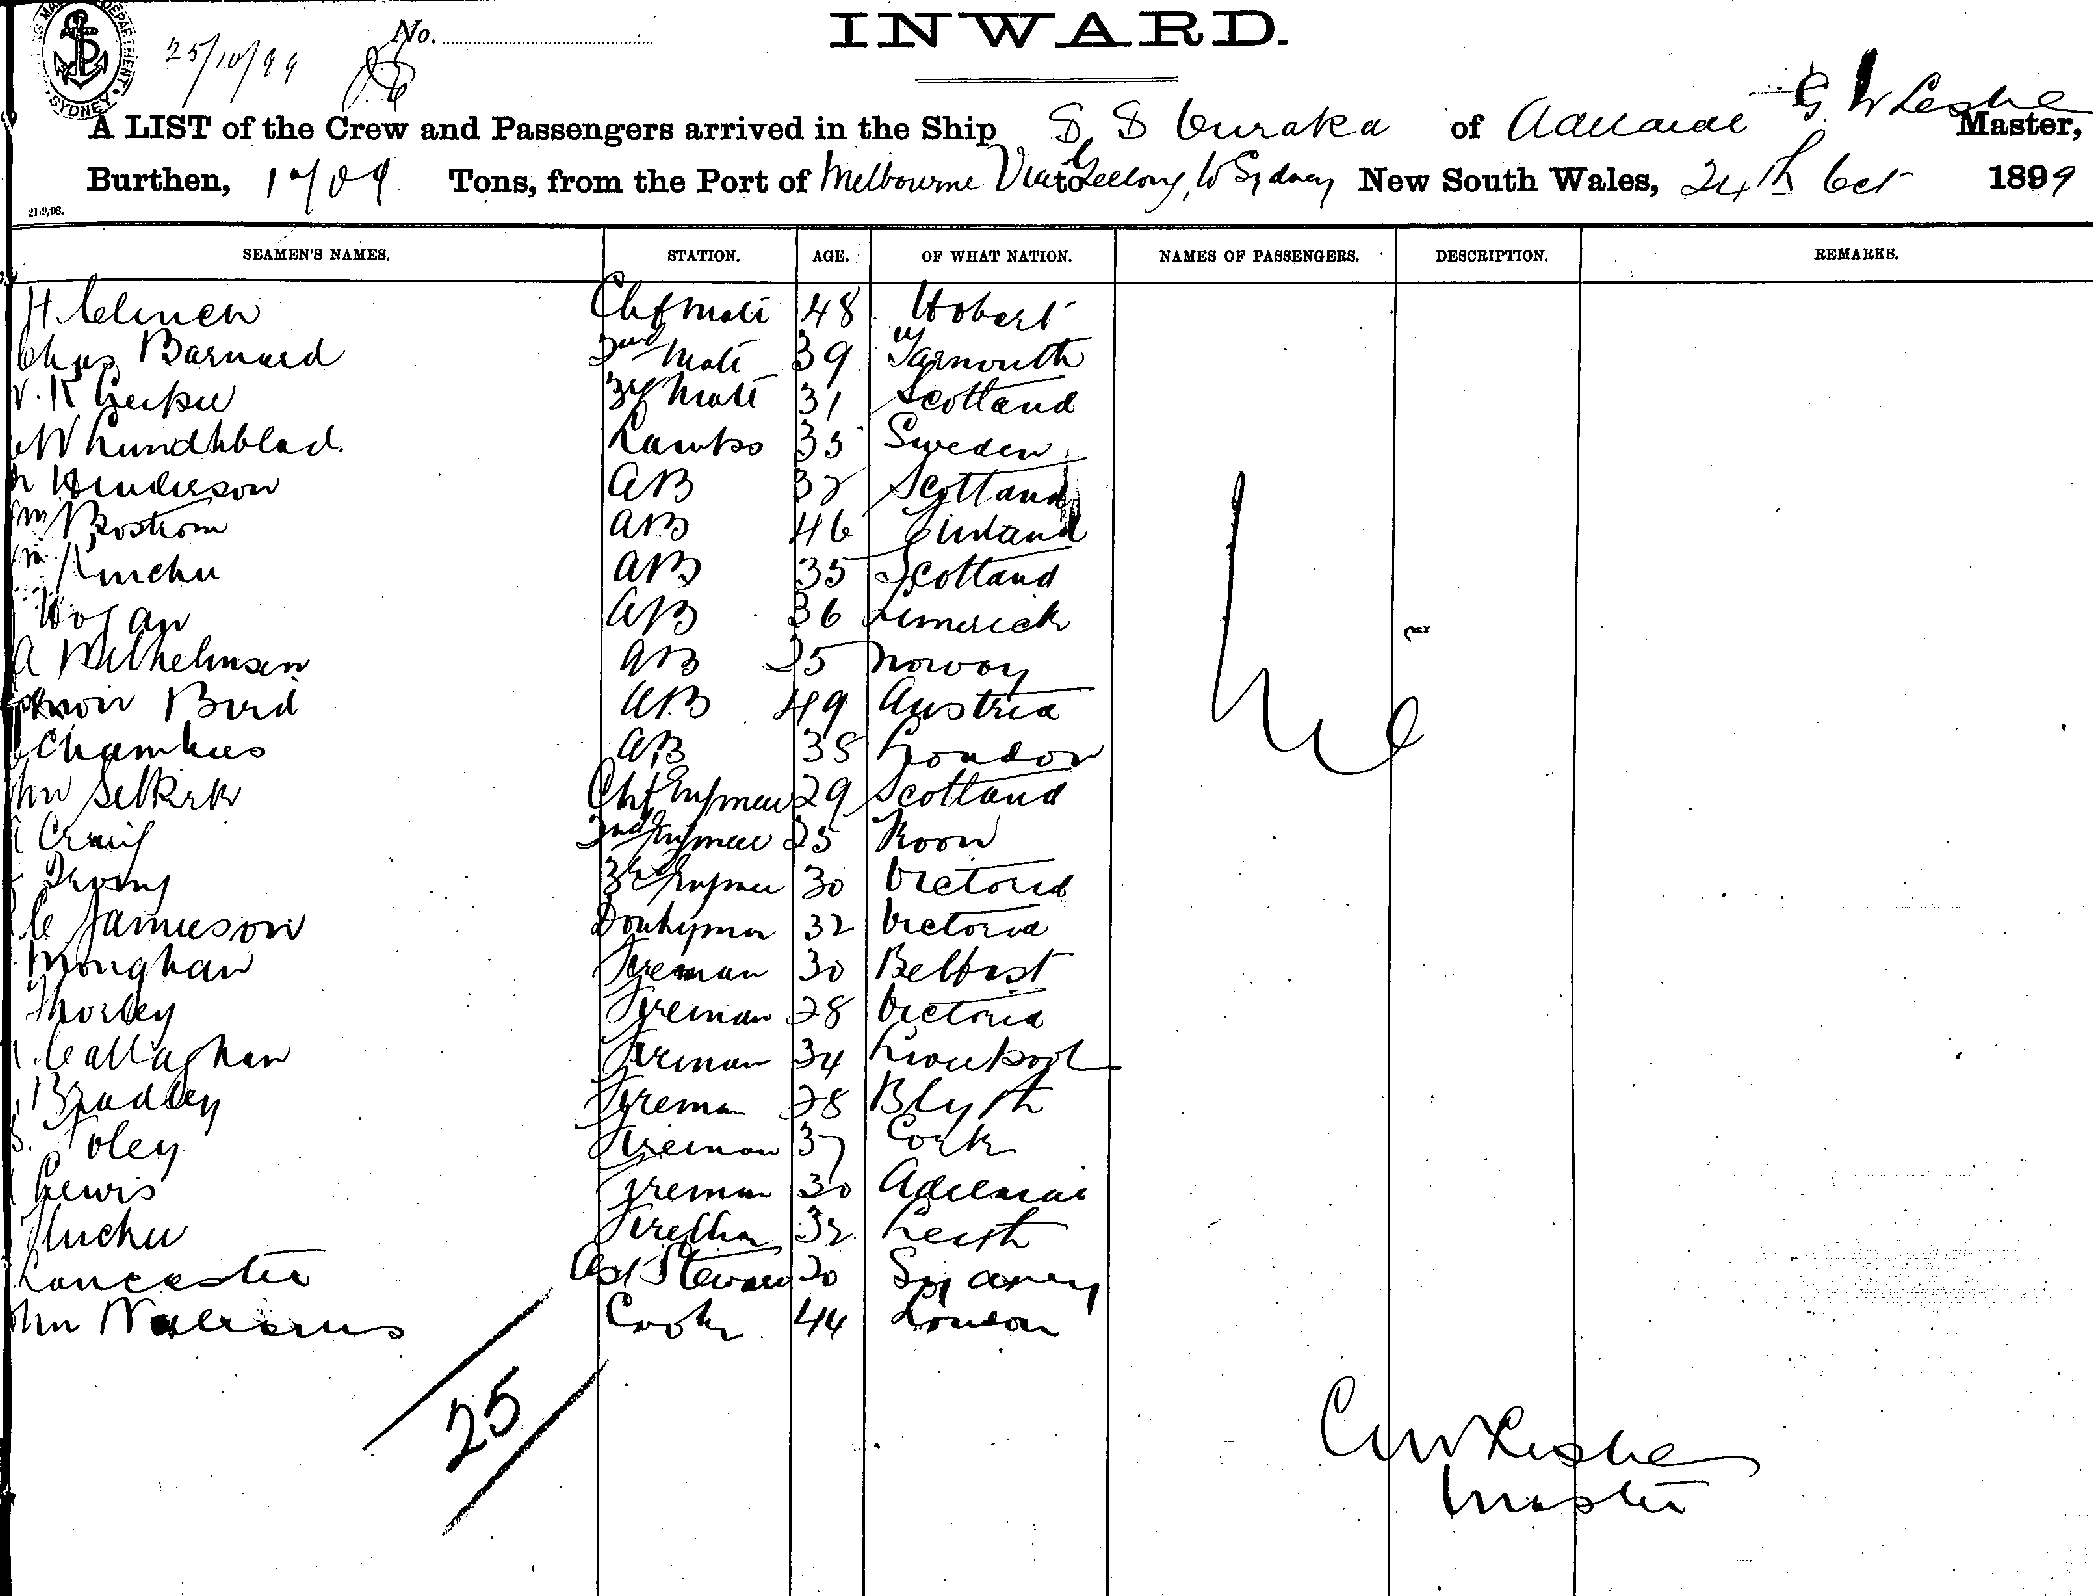 MARINE DEPARTMENT SYDNEY
25/10/99
No.
INWARD.
G W Leslie
A LIST of the Crew and Passengers arrived in the Ship S S Ouraka of Adelaide Master,
Burthen, 1709 Tons, from the Port of Melbourne Via Geelong, to Sydney New South Wales, 24th Oct 1899
21.9.98.
SEAMEN'S NAMES. STATION. AGE. OF WHAT NATION. NAMES OF PASSENGERS. DESCRIPTION. REMARKS.
H. Clinch Chf Mate 48 Hobart
Chas Barnard 2nd Mate 39 Yarmouth
R 3rd Mate 31 Scotland
W Lundhblad Lamps 35 Sweden
Henderson AB 32 Scotland
Wm Bostrom AB 46 Finland
Wm Kincher AB 35 Scotland
Hogan AB 36 Limerick
A Wilhelmsen AB 25 Norway
Bird AB 49 Austria
Chambers AB 38 London
John Selkirk Chf Engineer 29 Scotland
Craig 2nd Engineer 25
Irving 3rd Engineer 30 Victoria
C Jamieson Donkeyman 32 Victoria
Monghan Fireman 30 Belfast
Thorley Fireman 28 Victoria
Callaghan Fireman 34 Liverpool
Bradley Fireman 28 Blyth
Foley Fireman 37 Cork
Lewis Fireman 30 Adelaide
32 Leith
Lancaster Steward 20 Sydney
John Cook 44 London
Nil
25
G W Leslie
Master